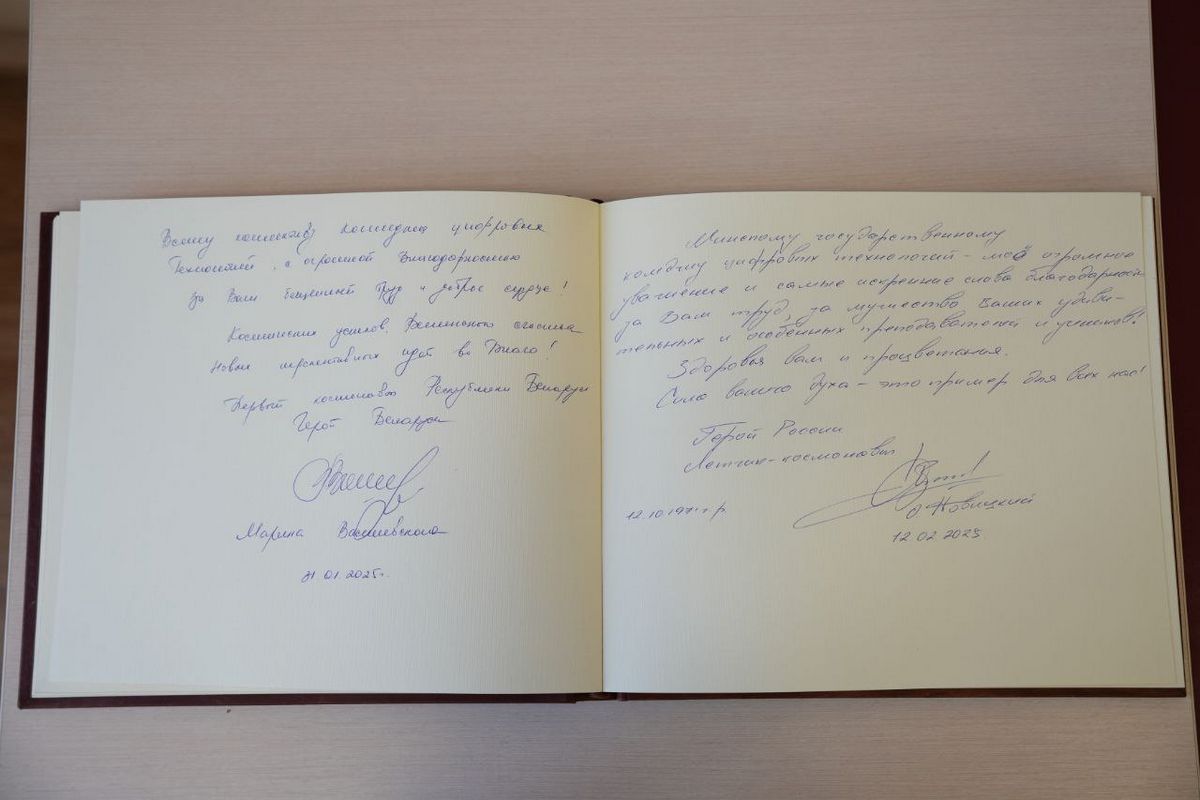 Всему коллективу колледжа цифровых
технологий, с огромной благодарностью
за Ваш бесценный труд и доброе сердце!
Космических успехов,
Новых перспективных идей во благо!
Первый космонавт Республики Беларусь
Герой Беларуси
Марина Василевская
31.01.2025г.
Минскому государственному
колледжу цифровых технологий - моё огромное
уважение и самые искренние слова благодарности
за Вам труд, за мужество Ваших удиви-
тельных и особенных преподавателей и учеников!
Здоровья вам и процветания.
Сила вашего духа - это пример для всех нас!
Герой России
Летчик-космонавт
О Новицкий
12.10.1971 г.р.
12 02 2025